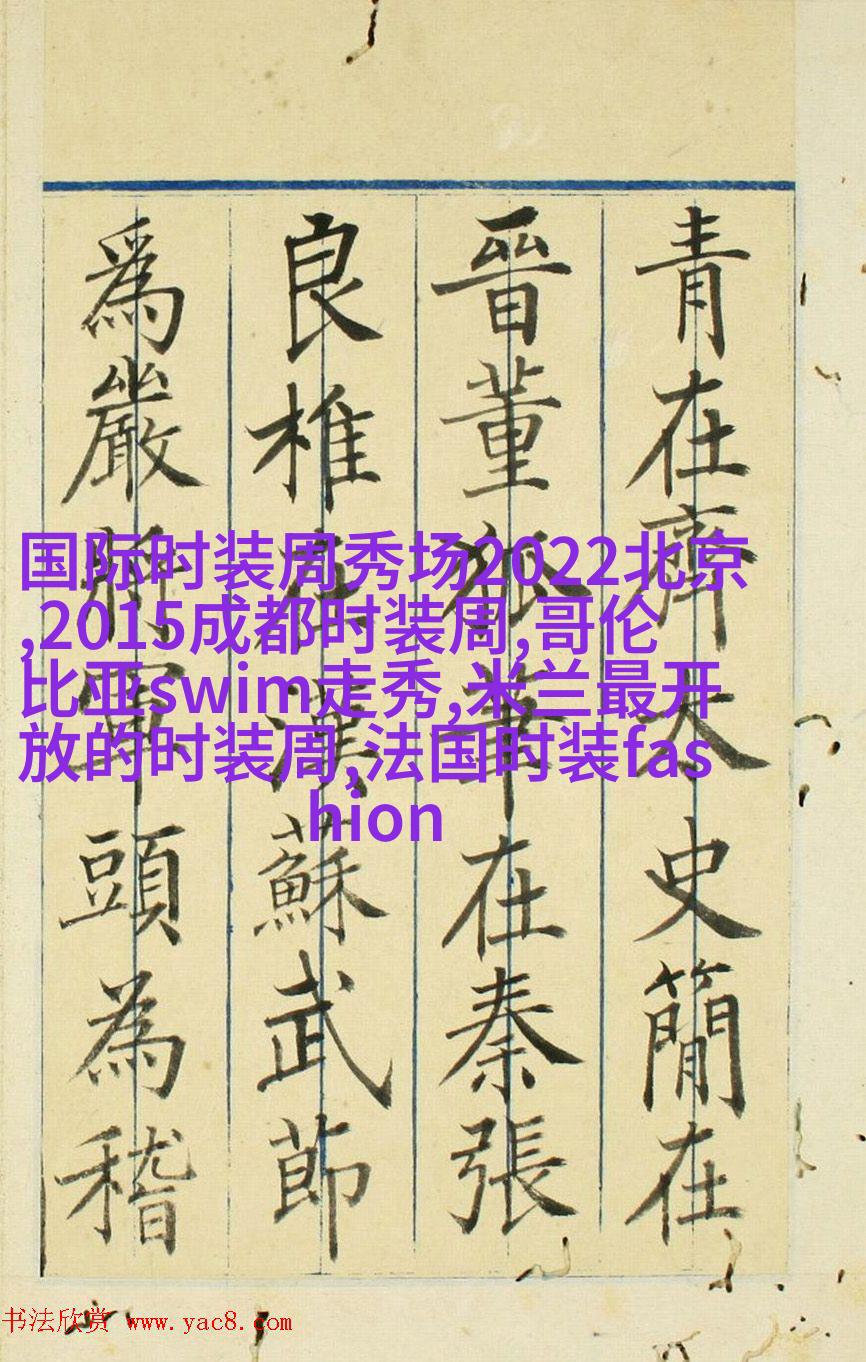 青在齊太史簡在
晉董狐筆在秦張
良椎在漢蘇武節
爲嚴將軍頭為稽
国际时装周秀场2022北京
,2015成都时装周,哥伦
比亚swim走秀,米兰最开
放的时装周,法国时装fas
hion
书法欣赏 www.yac8.com